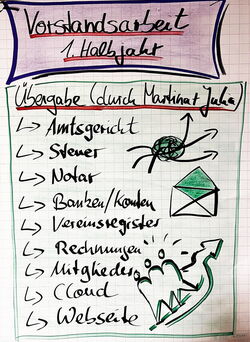 Vorstandsarbeit
1. Halbjahr
Übergabe (durch Martina + Julia)
↳ Amtsgericht
↳ Steuer
↳ Notar
↳ Banken/Konten
↳ Vereinsregister
↳ Rechnungen
↳ Mitglieder
↳ CCloud
↳ Webseite